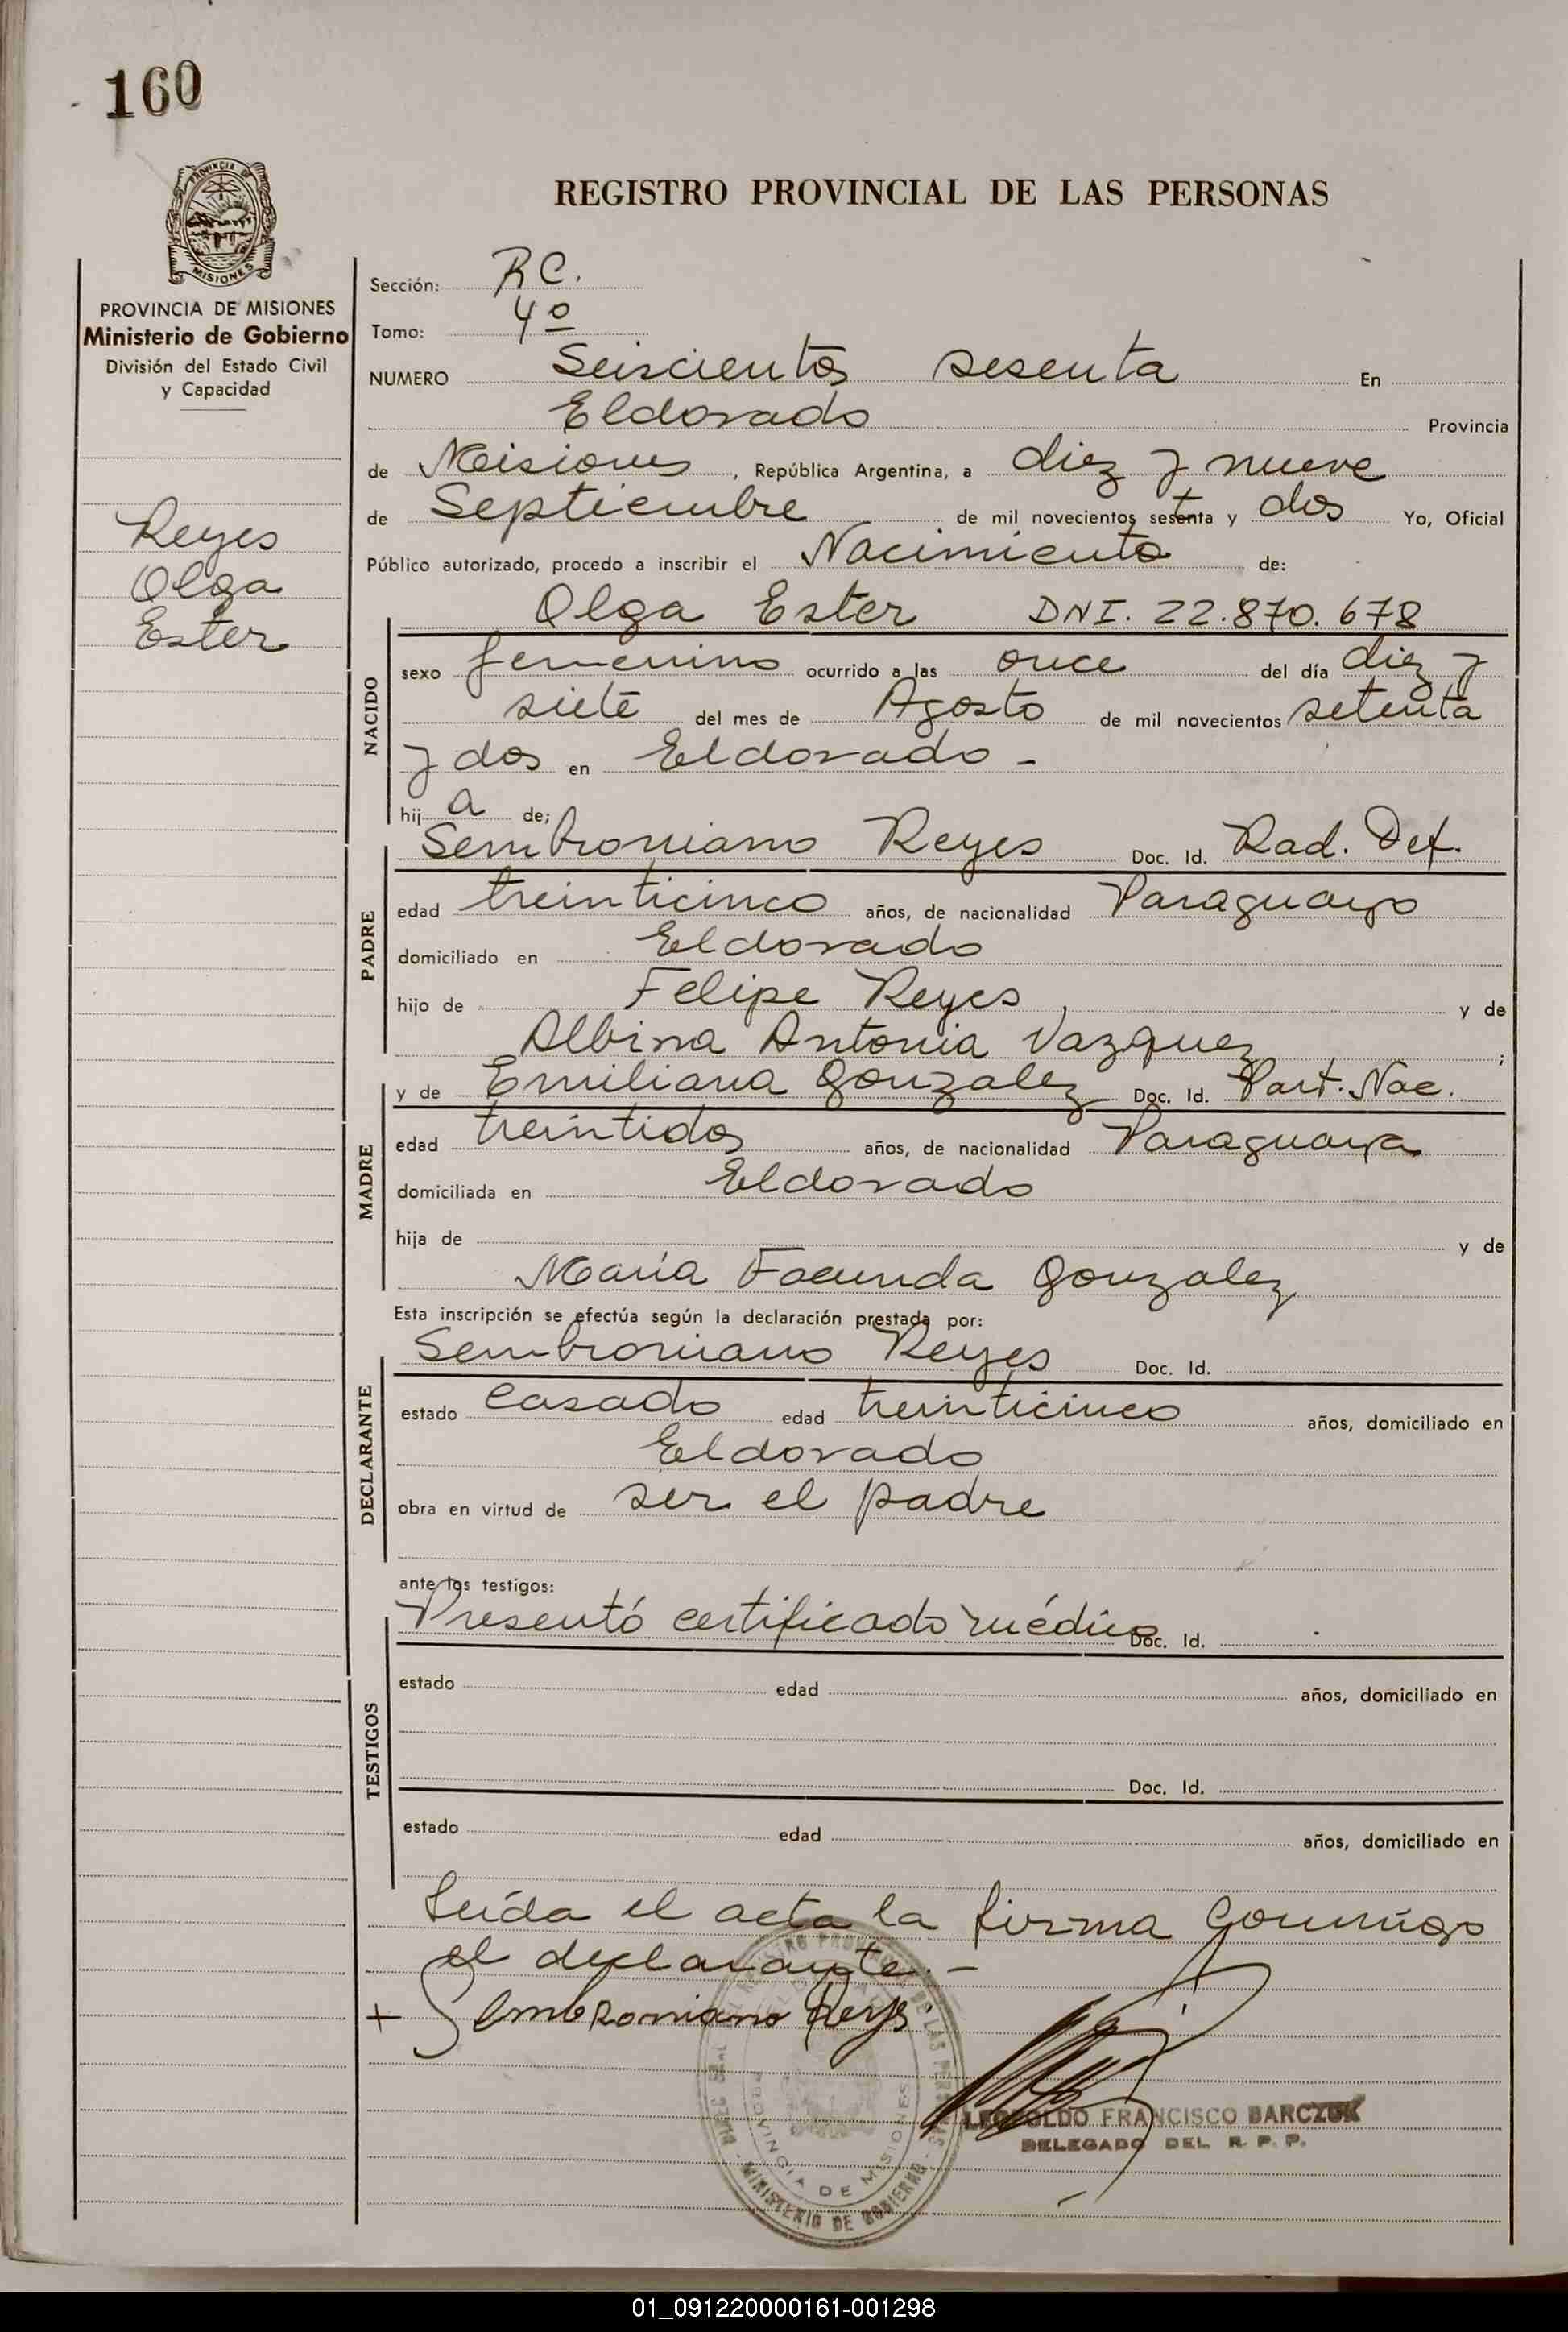 160
PROVINCIA DE
MISIONES
REGISTRO PROVINCIAL DE LAS PERSONAS
PROVINCIA DE MISIONES
Ministerio de Gobierno
División del Estado Civil
y Capacidad
Reyes
Olga
Ester
Sección: R C.
Tomo: 4º
NUMERO Seiscientos sesenta En
Eldorado Provincia
de Misiones, República Argentina, a diez y nueve
de Septiembre de mil novecientos setenta y dos Yo, Oficial
Público autorizado, procedo a inscribir el Nacimiento de:
Olga Ester DNI. 22.870.678
NACIDO
sexo femenino ocurrido a las once del día diez y
siete del mes de Agosto de mil novecientos setenta
y dos en Eldorado -
hij a de;
Sembroniano Reyes Doc. Id. Rad. Def.
PADRE
edad treinticinco años, de nacionalidad Paraguayo
domiciliado en Eldorado
hijo de Felipe Reyes, y de
Albina Antonia Vazquez;
y de Emiliana Gonzalez Doc. Id. Part. Nac.
MADRE
edad treintidos años, de nacionalidad Paraguaya
domiciliada en Eldorado
hija de y de
María Facunda Gonzalez
Esta inscripción se efectúa según la declaración prestada por:
Sembroniano Reyes Doc. Id.
DECLARANTE
estado casado edad treinticinco años, domiciliado en
Eldorado
obra en virtud de ser el padre
ante los testigos:
Presentó certificado médico Doc. Id.
TESTIGOS
estado edad años, domiciliado en
Doc. Id.
estado edad años, domiciliado en
Leída el acta la firma conmigo
el declarante. -
+ Sembroniano Reyes
REGISTRO PROVINCIAL DE LAS PERSONAS
PROVINCIA DE MISIONES
MINISTERIO DE GOBIERNO
LEOPOLDO FRANCISCO BARCZUK
DELEGADO DEL R. P. P.
01_091220000161-001298